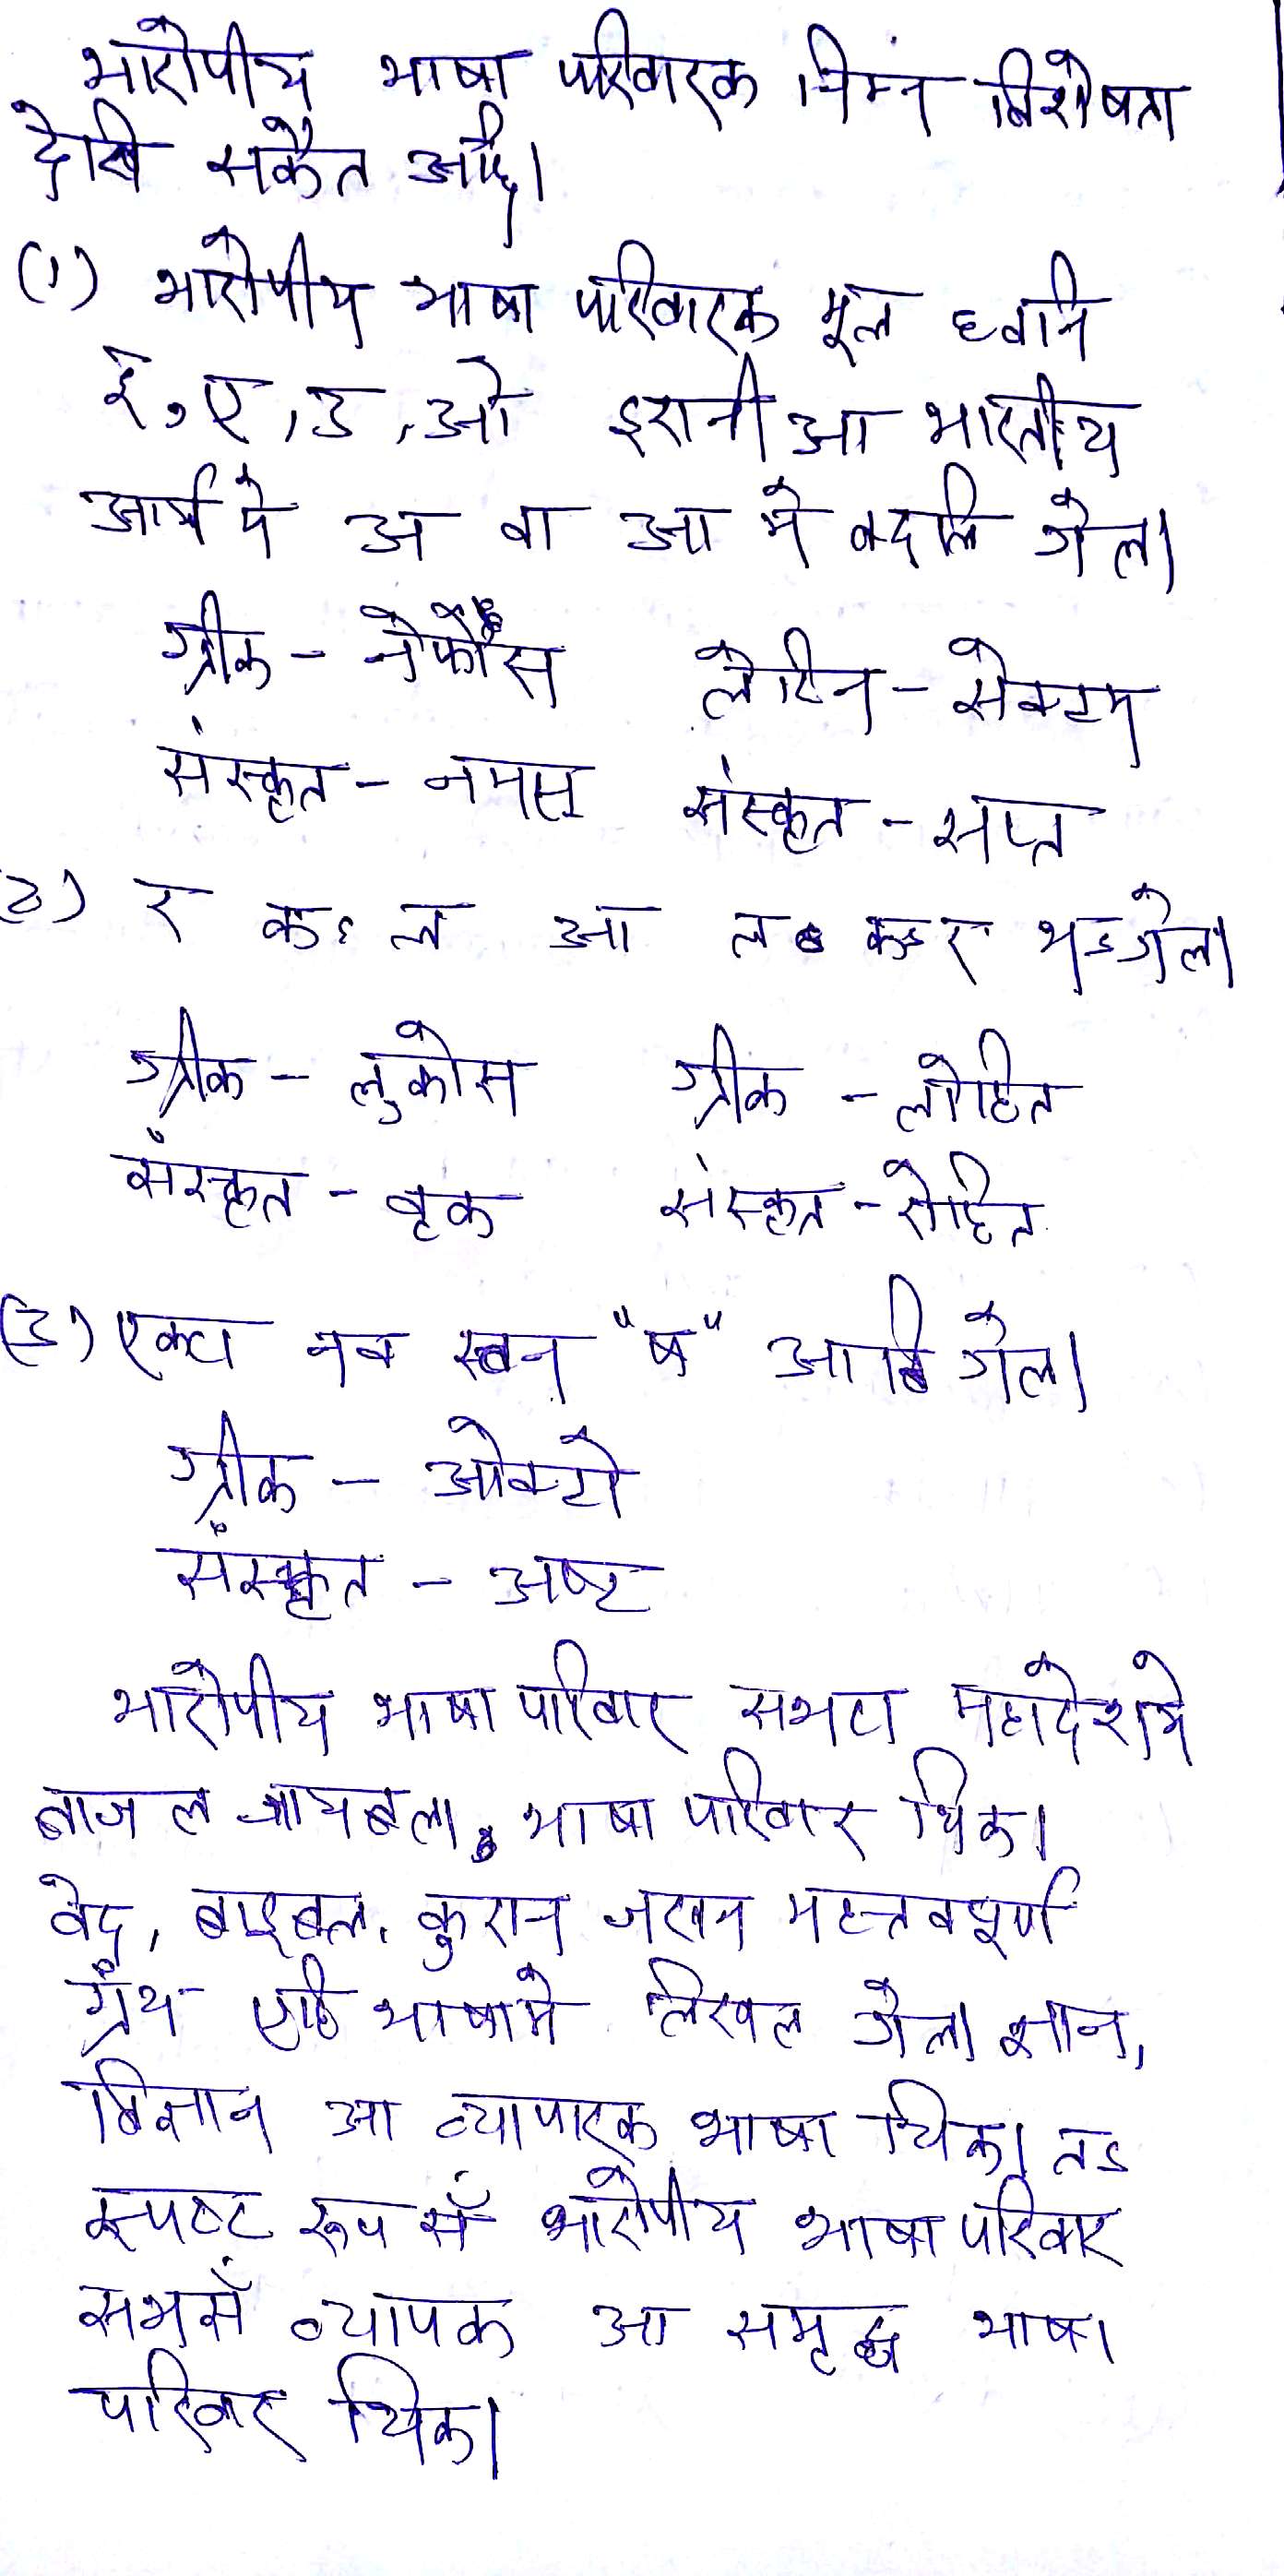 भारोपीय भाषा परिवारक निम्न विशेषता
देखि सकैत अछि।
(1) भारोपीय भाषा परिवारक मूल ध्वनि
ई, ए, उ, ओ इरानी आ भारतीय
आर्य मे अ वा आ मे बदलि गेल।
ग्रीक - नेफौस लैटिन - सेक्टम
संस्कृत - नमस् संस्कृत - सप्त
2) र कऽ ल आ ल कऽ र भऽ गेल।
ग्रीक - लुकोस ग्रीक - लोहित
संस्कृत - बृक संस्कृत - रोहित
(3) एकटा नव स्वन "ष" आबि गेल।
ग्रीक - ओक्टो
संस्कृत - अष्ट
भारोपीय भाषा परिवार सभटा महादेशमे
बाजल जायबला भाषा परिवार थिक।
वेद, बाइबल, कुरान जखन महत्तवपूर्ण
ग्रंथ एहि भाषामे लिखल गेल। ज्ञान,
बिज्ञान आ व्यापारक भाषा थिक। तऽ
स्पष्ट रूप सँ भारोपीय भाषा परिवार
सभसँ व्यापक आ समृद्ध भाषा
परिवार थिक।